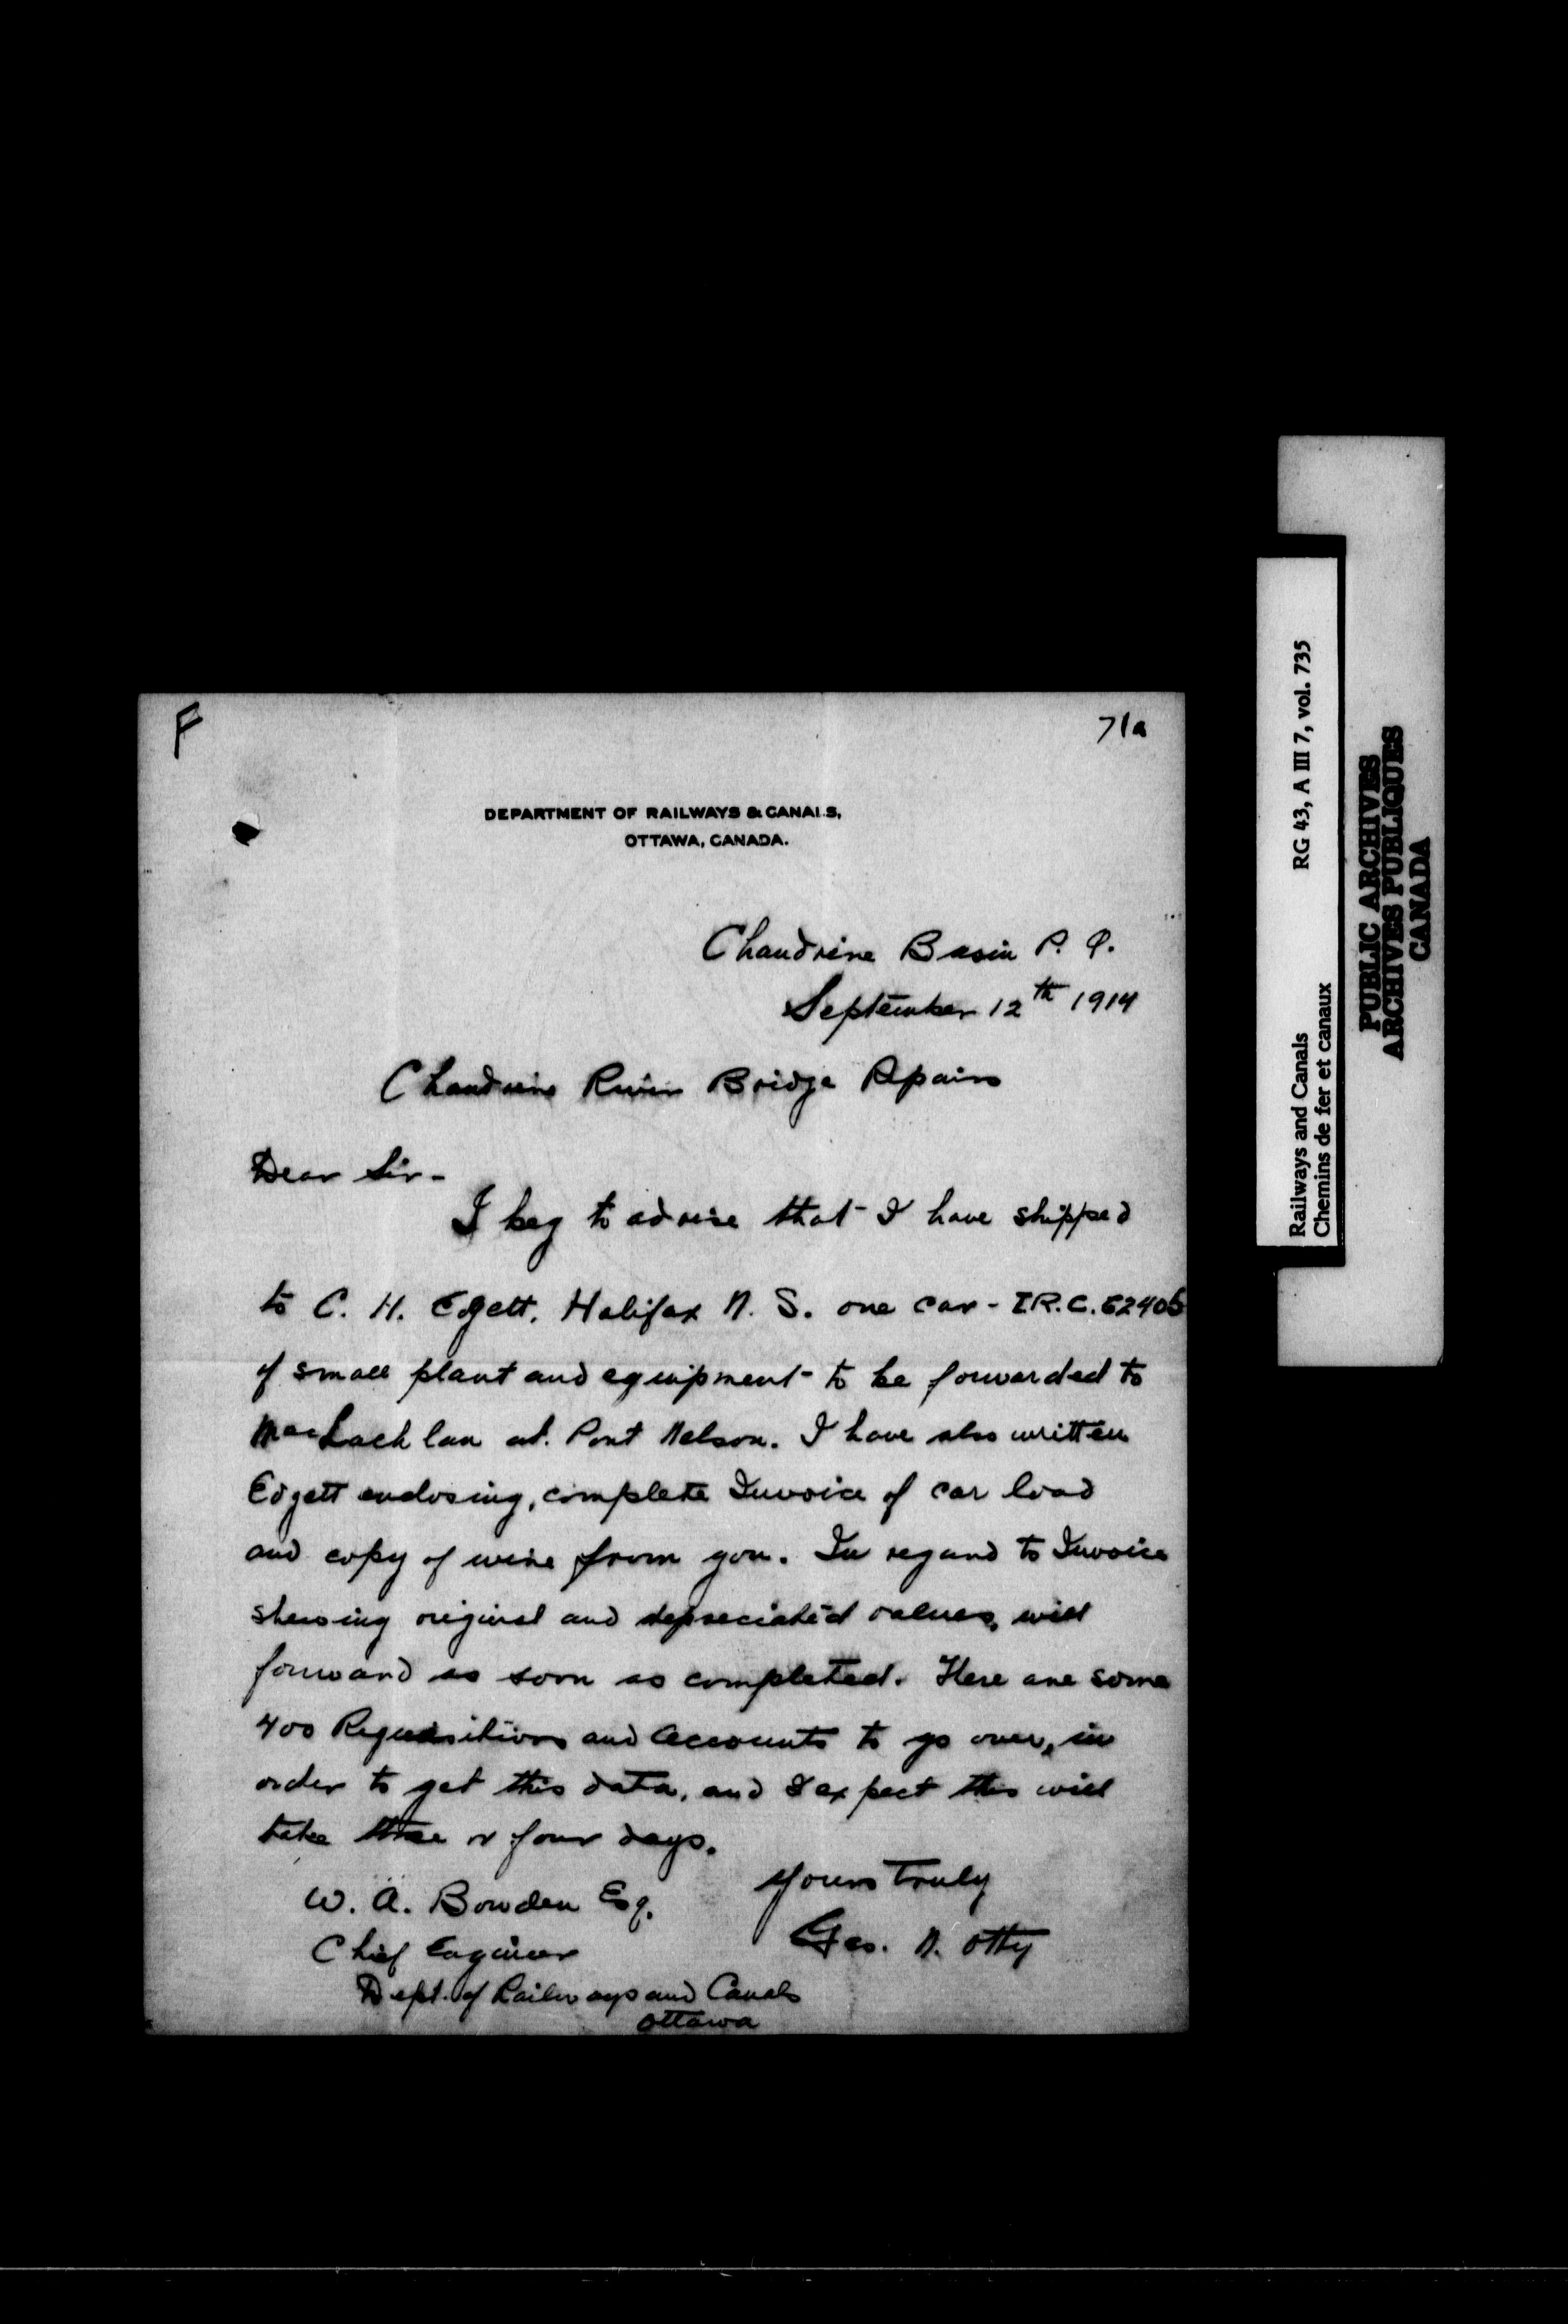 F
71a
DEPARTMENT OF RAILWAYS & CANALS,
OTTAWA, CANADA.
Chaudiere Basin P. Q.
September 12th 1914
Chaudiere River Bridge Repairs
Dear Sir-
I beg to advise that I have shipped
to C. H. Edgett, Halifax N. S. one car - I.R.C. 62406
of small plant and equipment - to be forwarded to
MacLachlan at. Port Nelson. I have also written
Edgett enclosing, complete Invoice of car load
and copy of wire from you. In regard to Invoice
shewing original and depreciated values, will
forward as soon as completed. There are some
400 Requisitions and accounts to go over, in
order to get this data, and I expect this will
take three or four days.
Yours truly
Geo. N. Otty
W. A. Bowden Esq.
Chief Engineer
Dept. of Railways and Canals
Ottawa
Railways and Canals RG 43, A III 7, vol. 735
Chemins de fer et canaux
PUBLIC ARCHIVES
ARCHIVES PUBLIQUES
CANADA